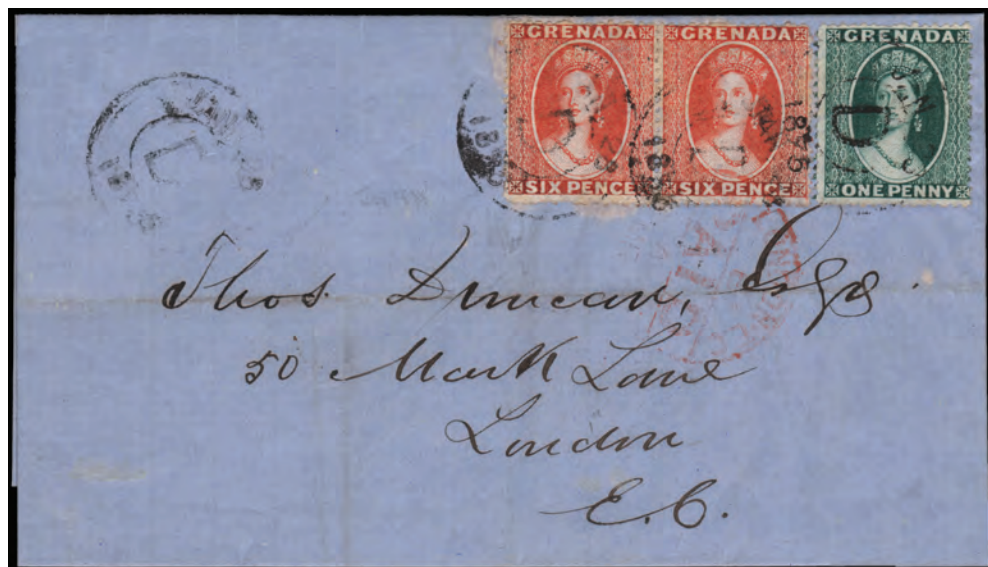 GRENADA GRENADA GRENADA
SIX PENCE SIX PENCE ONE PENNY
Thos. Duncan, Esqr.
50 Mark Lane
London
E.C.